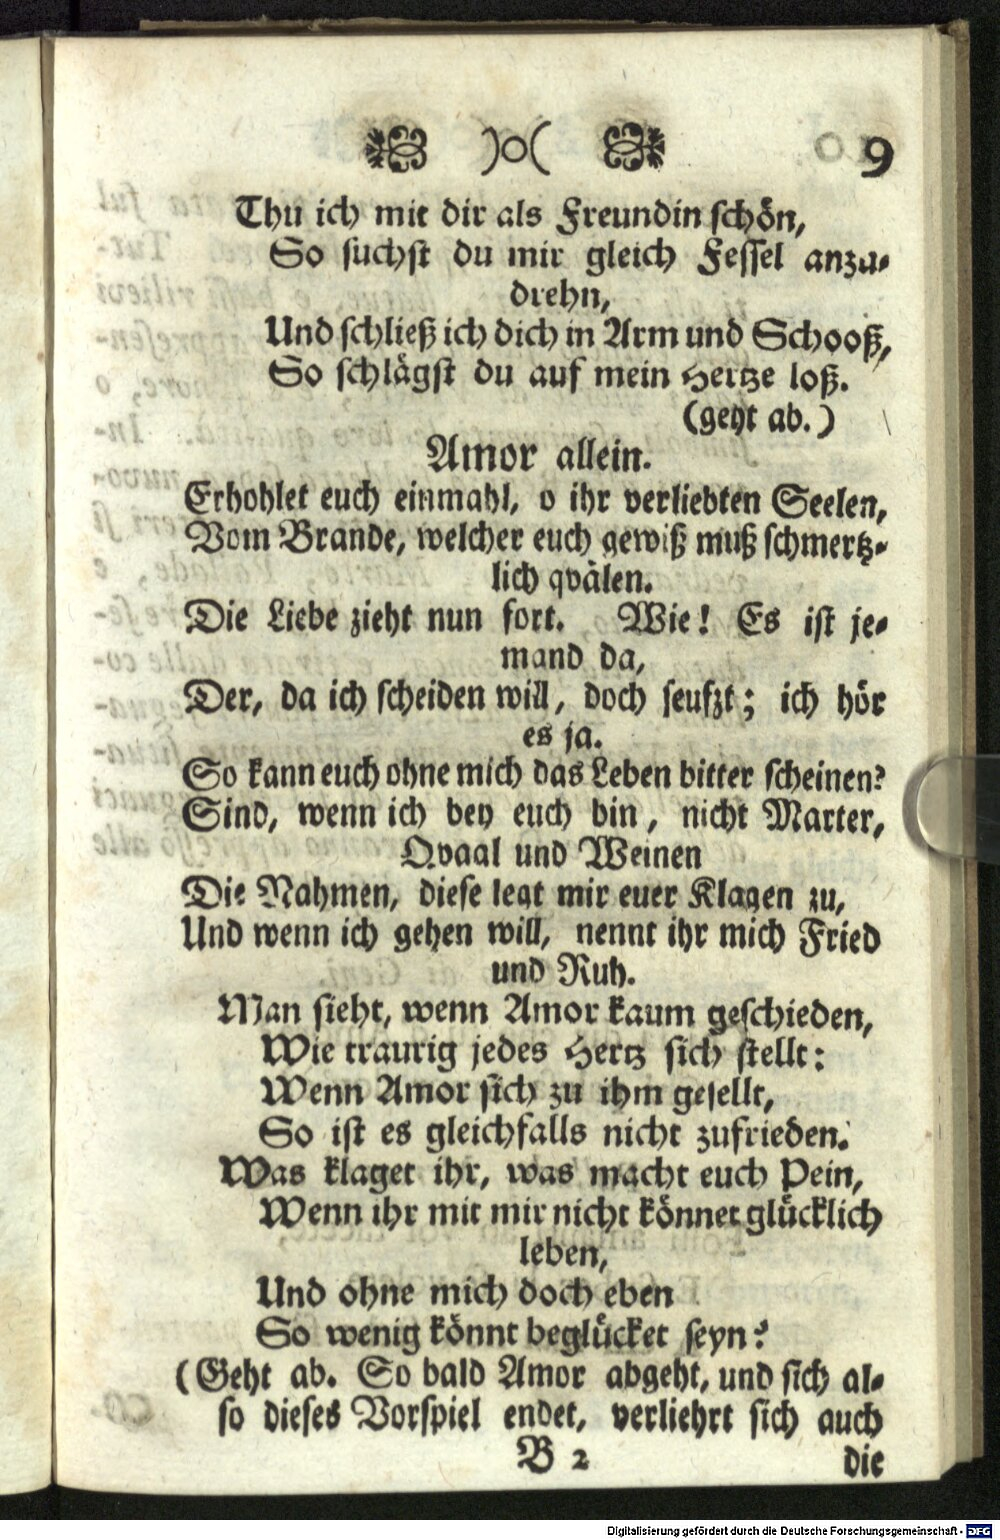 )o( 9
Thu ich mit dir als Freundin schön,
So suchst du mir gleich Fessel anzu-
drehn,
Und schließ ich dich in Arm und Schooß,
So schlägst du auf mein Hertze loß.
(geht ab.)
Amor allein.
Erhohlet euch einmahl, o ihr verliebten Seelen,
Vom Brande, welcher euch gewiß muß schmertz-
lich qvälen.
Die Liebe zieht nun fort. Wie! Es ist je-
mand da,
Der, da ich scheiden will, doch seufzt; ich hör
es ja.
So kann euch ohne mich das Leben bitter scheinen?
Sind, wenn ich bey euch bin, nicht Marter,
Qvaal und Weinen
Die Nahmen, diese legt mir euer Klagen zu,
Und wenn ich gehen will, nennt ihr mich Fried
und Ruh.
Man sieht, wenn Amor kaum geschieden,
Wie traurig jedes Hertz sich stellt:
Wenn Amor sich zu ihm gesellt,
So ist es gleichfalls nicht zufrieden.
Was klaget ihr, was macht euch Pein,
Wenn ihr mit mir nicht könnet glücklich
leben,
Und ohne mich doch eben
So wenig könnt beglücket seyn?
(Geht ab. So bald Amor abgeht, und sich al-
so dieses Vorspiel endet, verliehrt sich auch
B 2 die
Digitalisierung gefördert durch die Deutsche Forschungsgemeinschaft - DFG